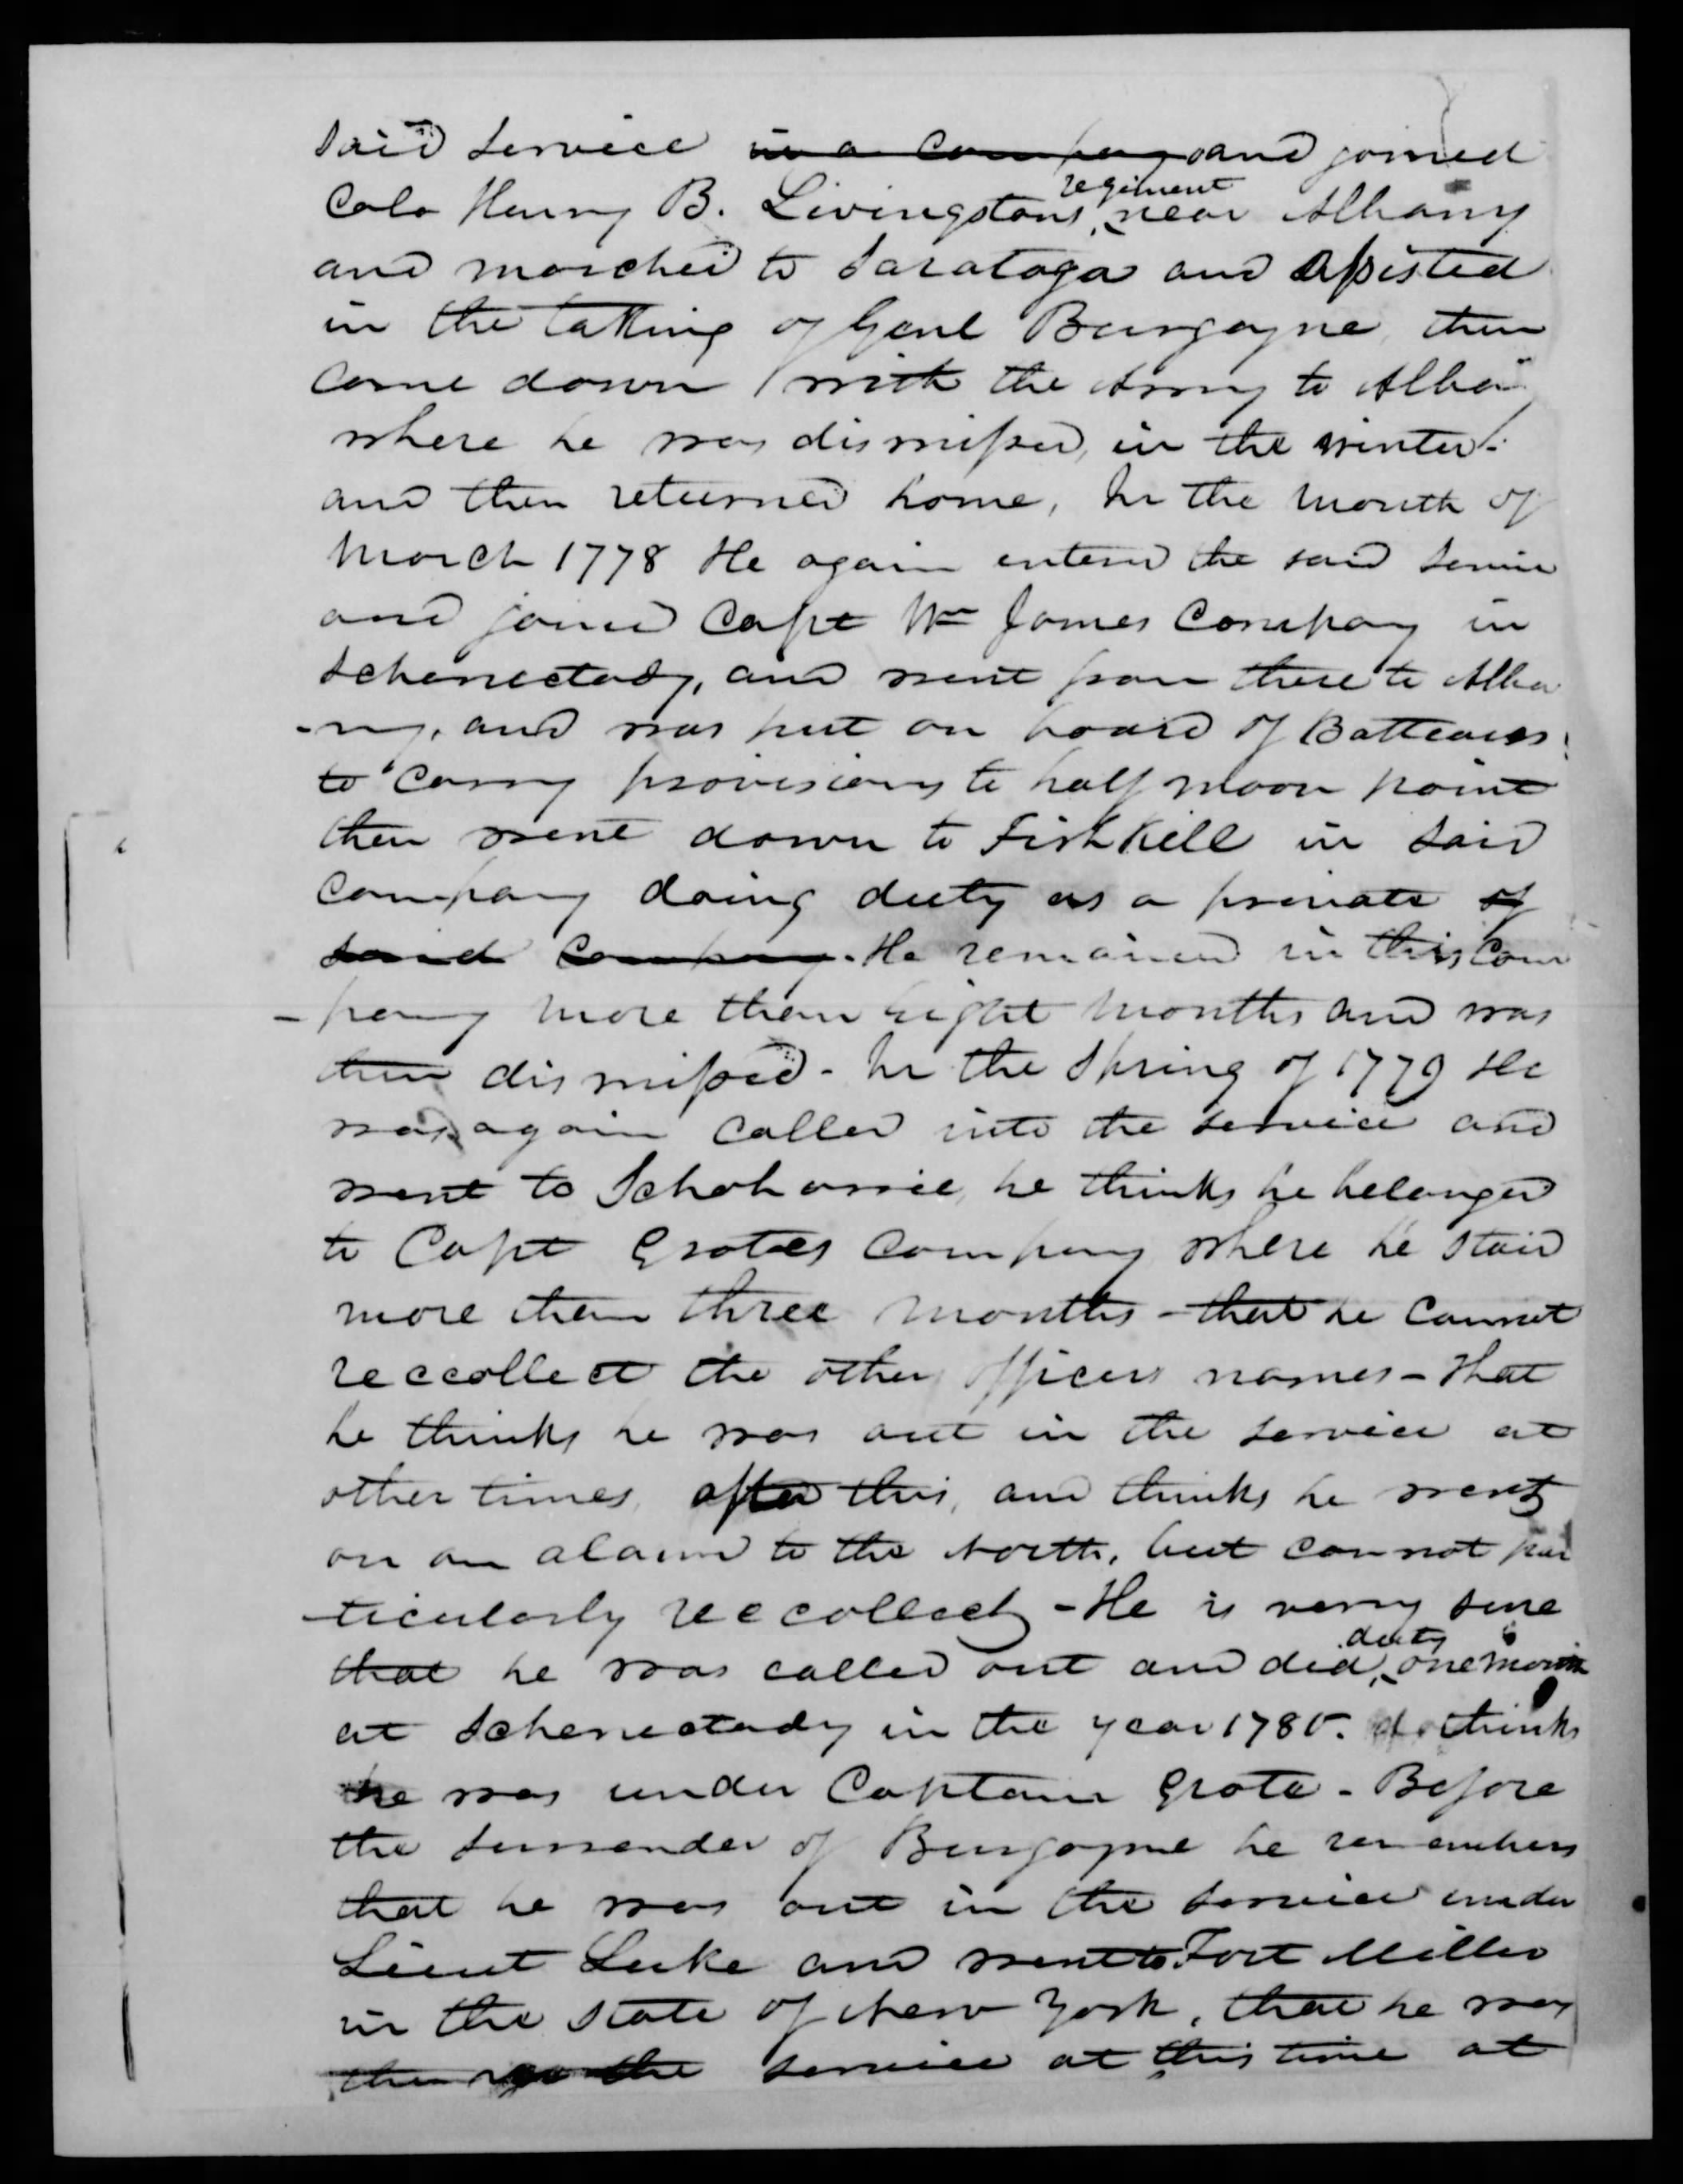 said service in a company and joined
Colo Henry B. Livingstons regiment near Albany
and marched to Saratoga and assisted
in the taking of Genl Burgoyne, then
came down with the Army to Alba
where he was dismissed, in the winter.
and then returned home, In the month of
March 1778 He again entered the said service
and joined Capt Wm James Company in
Schenectady, and went from there to Alba
-ny, and was put on board of Batteaus
to carry provisions to half moon point
then went down to Fishkill in said
company doing duty as a private of
said company. He remained in this Com
-pany more than eight months and was
then dismissed - In the Spring of 1779 He
was again called into the service and
went to Schoharrie, he thinks he belonged
to Capt Grotes company where he staid
more than three months - that he cannot
reccollect the other officers names - that
he thinks he was out in the service at
other times, after this, and thinks he went
on an alarm to the North, but cannot par
-ticularly reccollect - He is very sure
that he was called out and did duty one month
at Schenectady in the year 1780. thinks
he was under Captain Grote - Before
the surrender of Burgoyne he remembers
that he was out in the service under
Lieut Luke and went to Fort Miller
in the State of New York, that he was
the service at this time at